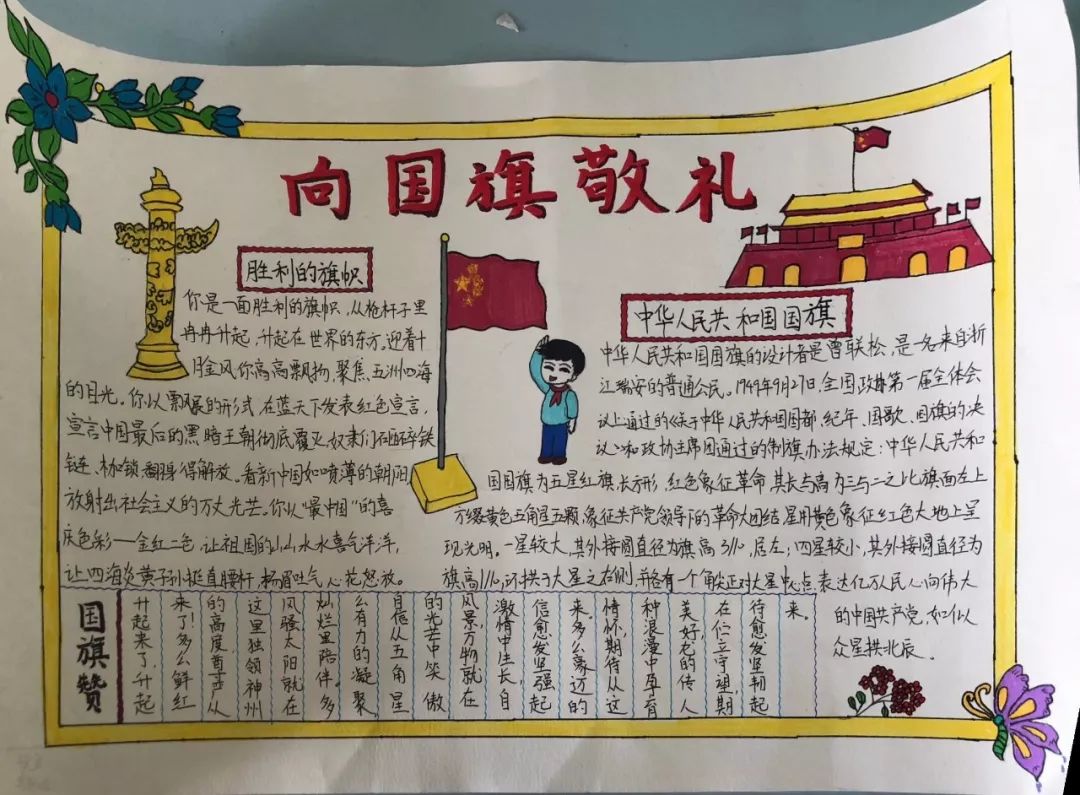 向国旗敬礼
胜利的旗帜
你是一面胜利的旗帜,从枪杆子里
冉冉升起,升起在世界的东方。迎着十
月金风你高高飘扬,聚焦五洲四海
的目光。你以飘展的形式,在蓝天下发表红色宣言,
宣言中国最后的黑暗王朝彻底覆灭,奴隶们砸碎铁
链、枷锁,翻身得解放。看新中国如喷薄的朝阳
放射出社会主义的万丈光芒。你以“最中国”的喜
庆色彩——金红二色,让祖国的山山水水喜气洋洋,
让四海炎黄子孙挺直腰杆,扬眉吐气,心花怒放。
中华人民共和国国旗
中华人民共和国国旗的设计者是曾联松,是一名来自浙
江瑞安的普通公民。1949年9月27日,全国政协第一届全体会
议上通过的《关于中华人民共和国国都、纪年、国歌、国旗的决
议》和政协主席团通过的制旗办法规定:中华人民共和
国国旗为五星红旗,长方形,红色象征革命,其长与高为三与二之比,旗面左上
方缀黄色五角星五颗,象征共产党领导下的革命大团结,星用黄色象征红色大地上呈
现光明。一星较大,其外接圆直径为旗高3/10,居左;四星较小,其外接圆直径为
旗高1/10,环拱于大星之右侧,并各有一个角尖正对大星中心点,表达亿万人民心向伟大
的中国共产党,如似
众星拱北辰。
国旗赞
升起来了,升起
来了!多么鲜红
的高度,尊严从
这里独领神州
风骚,太阳就在
灿烂里陪伴。多
么有力的凝聚,
自信从五角星
的光芒中笑傲
风景,万物就在
激情中生长,自
信愈发坚强起
来。多么豪迈的
情怀,期待从这
种浪漫中孕育
美好,龙的传人
在伫立守望,期
待愈发坚韧起
来。